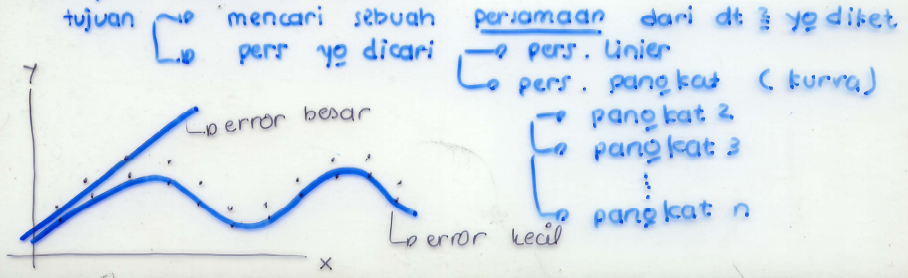 tujuan → mencari sebuah persamaan dari dt² yg diket
→ pers yg dicari → pers. linier
→ pers. pangkat (kurva)
→ pangkat 2
→ pangkat 3
⋮
→ pangkat n
Y
error besar
error kecil
X